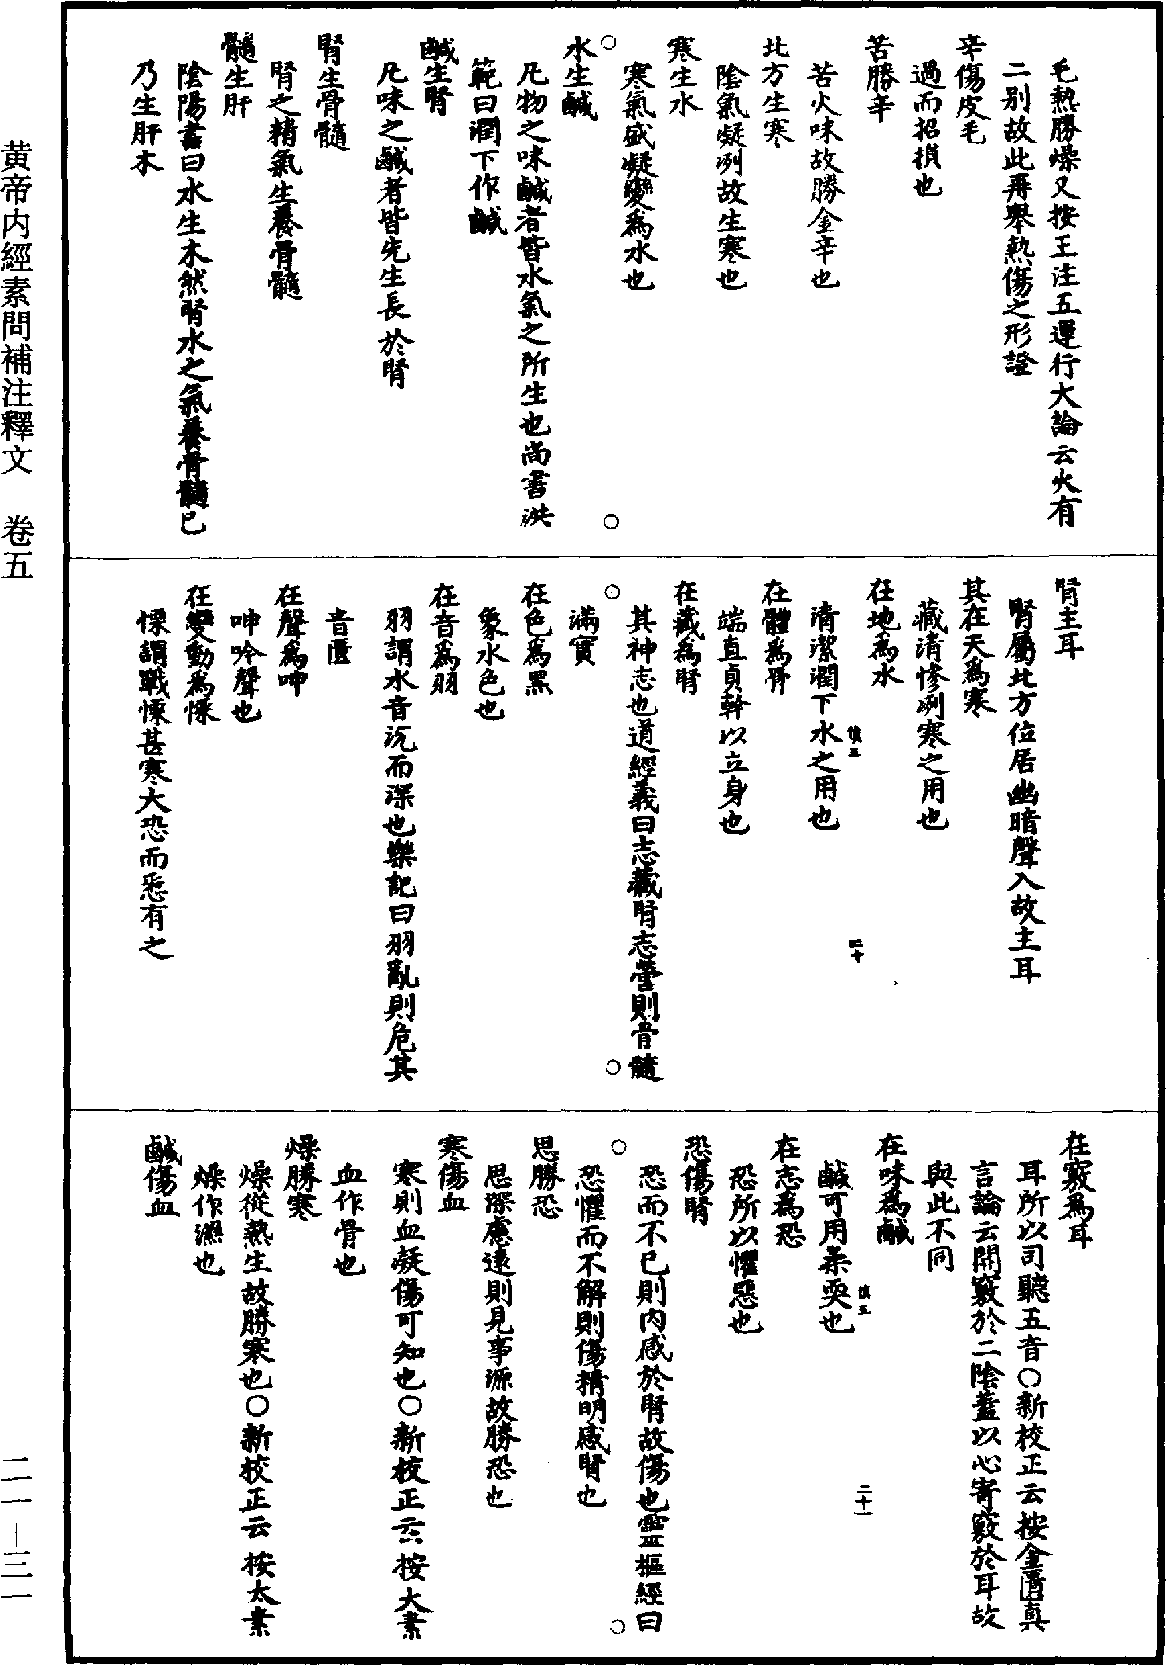 毛熱勝燥又按王注五運行大論云火有
二别故此再舉熱傷之形證
辛傷皮毛
過而招損也
苦勝辛
苦火味故勝金辛也
北方生寒
陰氣凝冽故生寒也
寒生水
寒氣盛凝變爲水也
水生鹹
凡物之味鹹者皆水氣之所生也尚書洪
範曰潤下作鹹
鹹生腎
凡味之鹹者皆先生長於腎
腎生骨髓
腎之精氣生養骨髓
髓生肝
陰陽書曰水生木然腎水之氣養骨髓已
乃生肝木
腎主耳
腎屬北方位居幽暗聲入故主耳
其在天爲寒
藏清慘冽寒之用也
在地爲水
清潔潤下水之用也
慎五
二十
在體爲骨
端直貞幹以立身也
在藏爲腎
其神志也道經義曰志藏腎志營則骨髓
滿實
在色爲黑
象水色也
在音爲羽
羽謂水音沉而深也樂記曰羽亂則危其
音匱
在聲爲呻
呻吟聲也
在變動爲慄
慄謂戰慄甚寒大恐而悉有之
在竅爲耳
耳所以司聽五音○新校正云按金匱真
言論云開竅於二陰蓋以心寄竅於耳故
與此不同
在味爲鹹
鹹可用柔耎也
慎五
二十一
在志爲恐
恐所以懼惡也
恐傷腎
恐而不已則内感於腎故傷也靈樞經曰
恐懼而不解則傷精明感腎也
思勝恐
思深慮遠則見事源故勝恐也
寒傷血
寒則血凝傷可知也○新校正云按太素
血作骨也
燥勝寒
燥從熱生故勝寒也○新校正云按太素
燥作濕也
鹹傷血
黄帝内經素問補注釋文 卷五
二一—三一